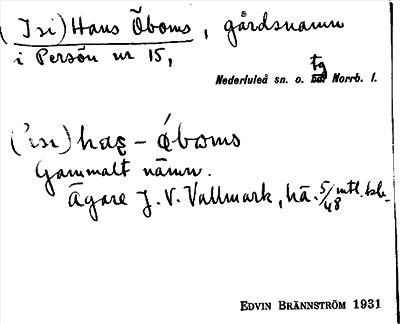 (Isi) Hans Öboms, gårdsnamn
i Persön nr 15,
Nederluleå sn. o. tg Norrb. l.
('ɪsɪ) has - óboms
Gammalt namn.
Ägare J. V. Vallmark, hä. 5/48 mtl.
EDVIN BRÄNNSTRÖM 1931